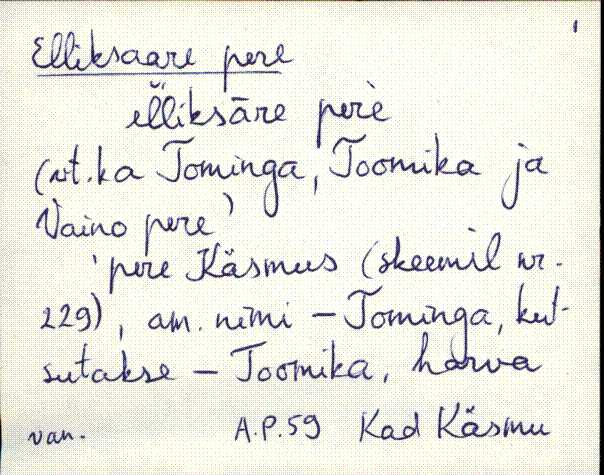 1
Elliksaare pere
el̆liksāre perè
(vt. ka Tominga, Toomika ja
Vaino pere)
'pere Käsmus (skeemil nr.
229), am. nimi – Tominga, kut-
sutakse – Toomika, harva
van. A.P.59 Kad Käsmu